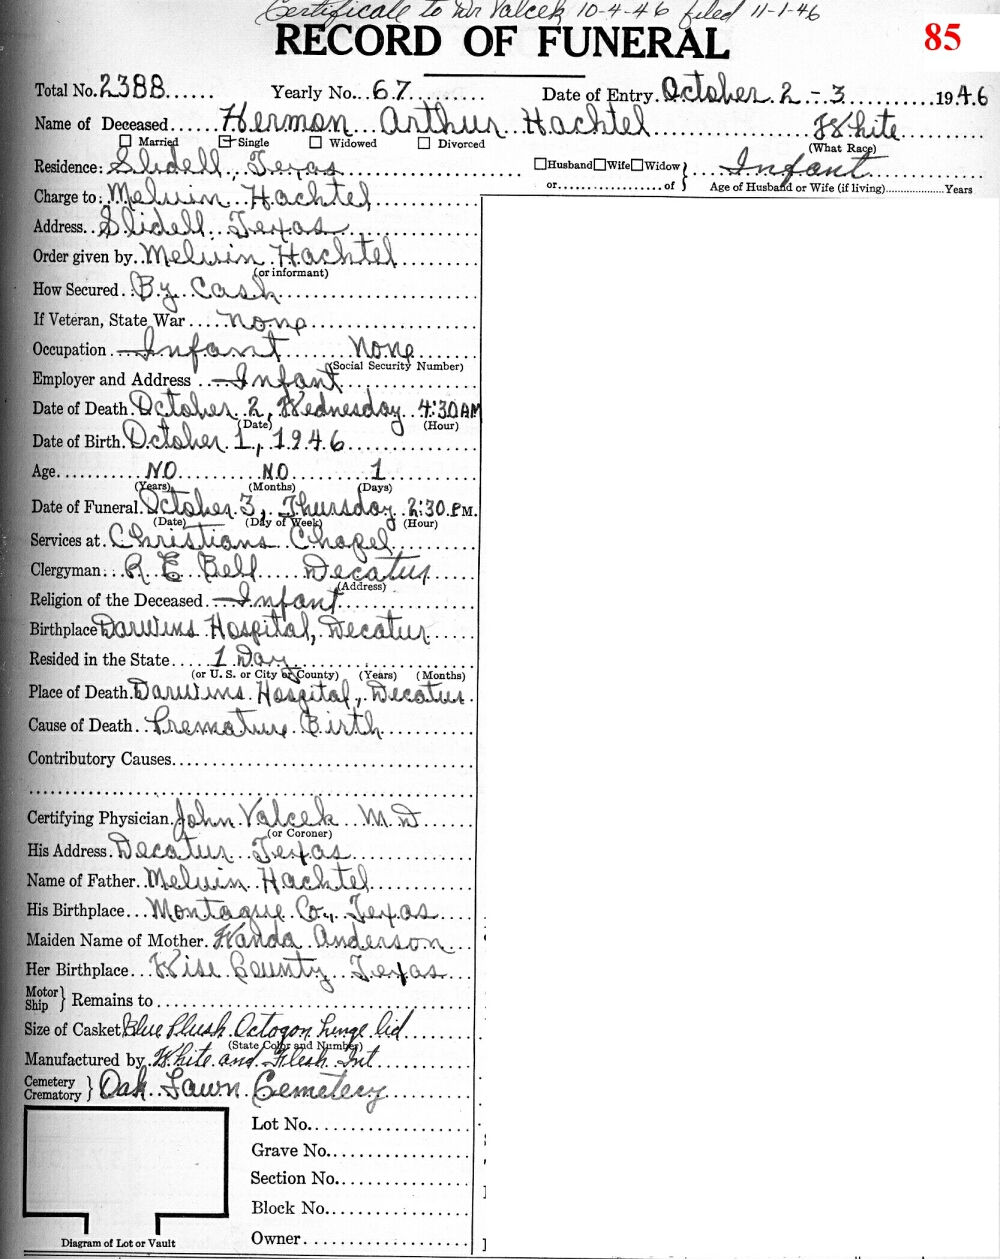 Certificate to Dr Valcek 10-4-46 filed 11-1-46
RECORD OF FUNERAL
85
Total No. 2388 Yearly No. 67 Date of Entry October 2 - 3 1946
Name of Deceased Hermon Arthur Hachtel White
Married Single Widowed Divorced (What Race)
Residence: Slidell, Texas Husband Wife Widow } Infant
or of Age of Husband or Wife (if living) Years
Charge to: Melvin Hachtel
Address Slidell Texas
Order given by Melvin Hachtel
(or informant)
How Secured By Cash
If Veteran, State War none
Occupation Infant None
(Social Security Number)
Employer and Address Infant
Date of Death October 2, Wednesday 4:30 AM
(Date) (Hour)
Date of Birth October 1, 1946
Age NO NO 1
(Years) (Months) (Days)
Date of Funeral October 3, Thursday 2:30 P.M.
(Date) (Day of Week) (Hour)
Services at Christians Chapel
Clergyman R E Bell Decatur
(Address)
Religion of the Deceased Infant
Birthplace Darwins Hospital, Decatur
Resided in the State 1 Day
(or U. S. or City or County) (Years) (Months)
Place of Death Darwins Hospital, Decatur
Cause of Death Premature Birth
Contributory Causes
Certifying Physician John Valcek M.D
(or Coroner)
His Address Decatur Texas
Name of Father Melvin Hachtel
His Birthplace Montague Co., Texas
Maiden Name of Mother Wanda Anderson
Her Birthplace Wise County Texas
Motor Ship } Remains to
Size of Casket Blue Plush Octogon hinge lid
(State Color and Number)
Manufactured by White and Flesh Int
Cemetery Crematory } Oak Lawn Cemetery
Lot No.
Grave No.
Section No.
Block No.
Owner
Diagram of Lot or Vault